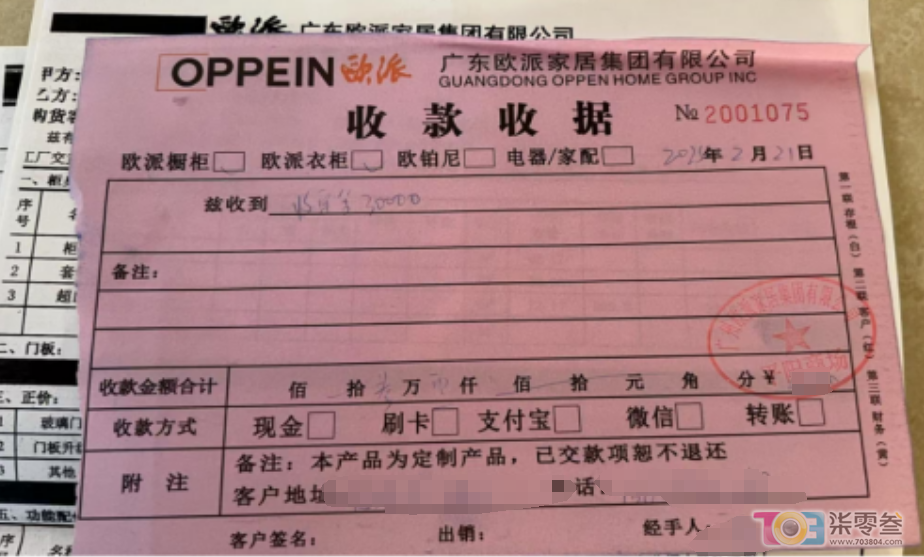 欧派 广东欧派家居集团有限公司
甲方:
乙方:
购货客
兹有
工厂交
一、柜
序号
1 柜
2 套
3 超
二、门板:
三、正价:
1 玻璃门
2 门板升级
3 其他
五、功能配
序号 名称
OPPEIN 欧派 广东欧派家居集团有限公司
GUANGDONG OPPEIN HOME GROUP INC
收款收据
№ 2001075
欧派橱柜 欧派衣柜 欧铂尼 电器/家配 年 2 月 21 日
兹收到 30000
备注:
收款金额合计 佰 拾 叁 万 仟 佰 拾 元 角 分 ¥
收款方式 现金 刷卡 支付宝 微信 转账
附 注 备注:本产品为定制产品,已交款项恕不退还
客户地址 话、
客户签名: 出销: 经手人:
第一联 存根(白) 第二联 客户(红) 第三联 财务(黄)
家居集团有限
T03 柒零叁
www.703804.com